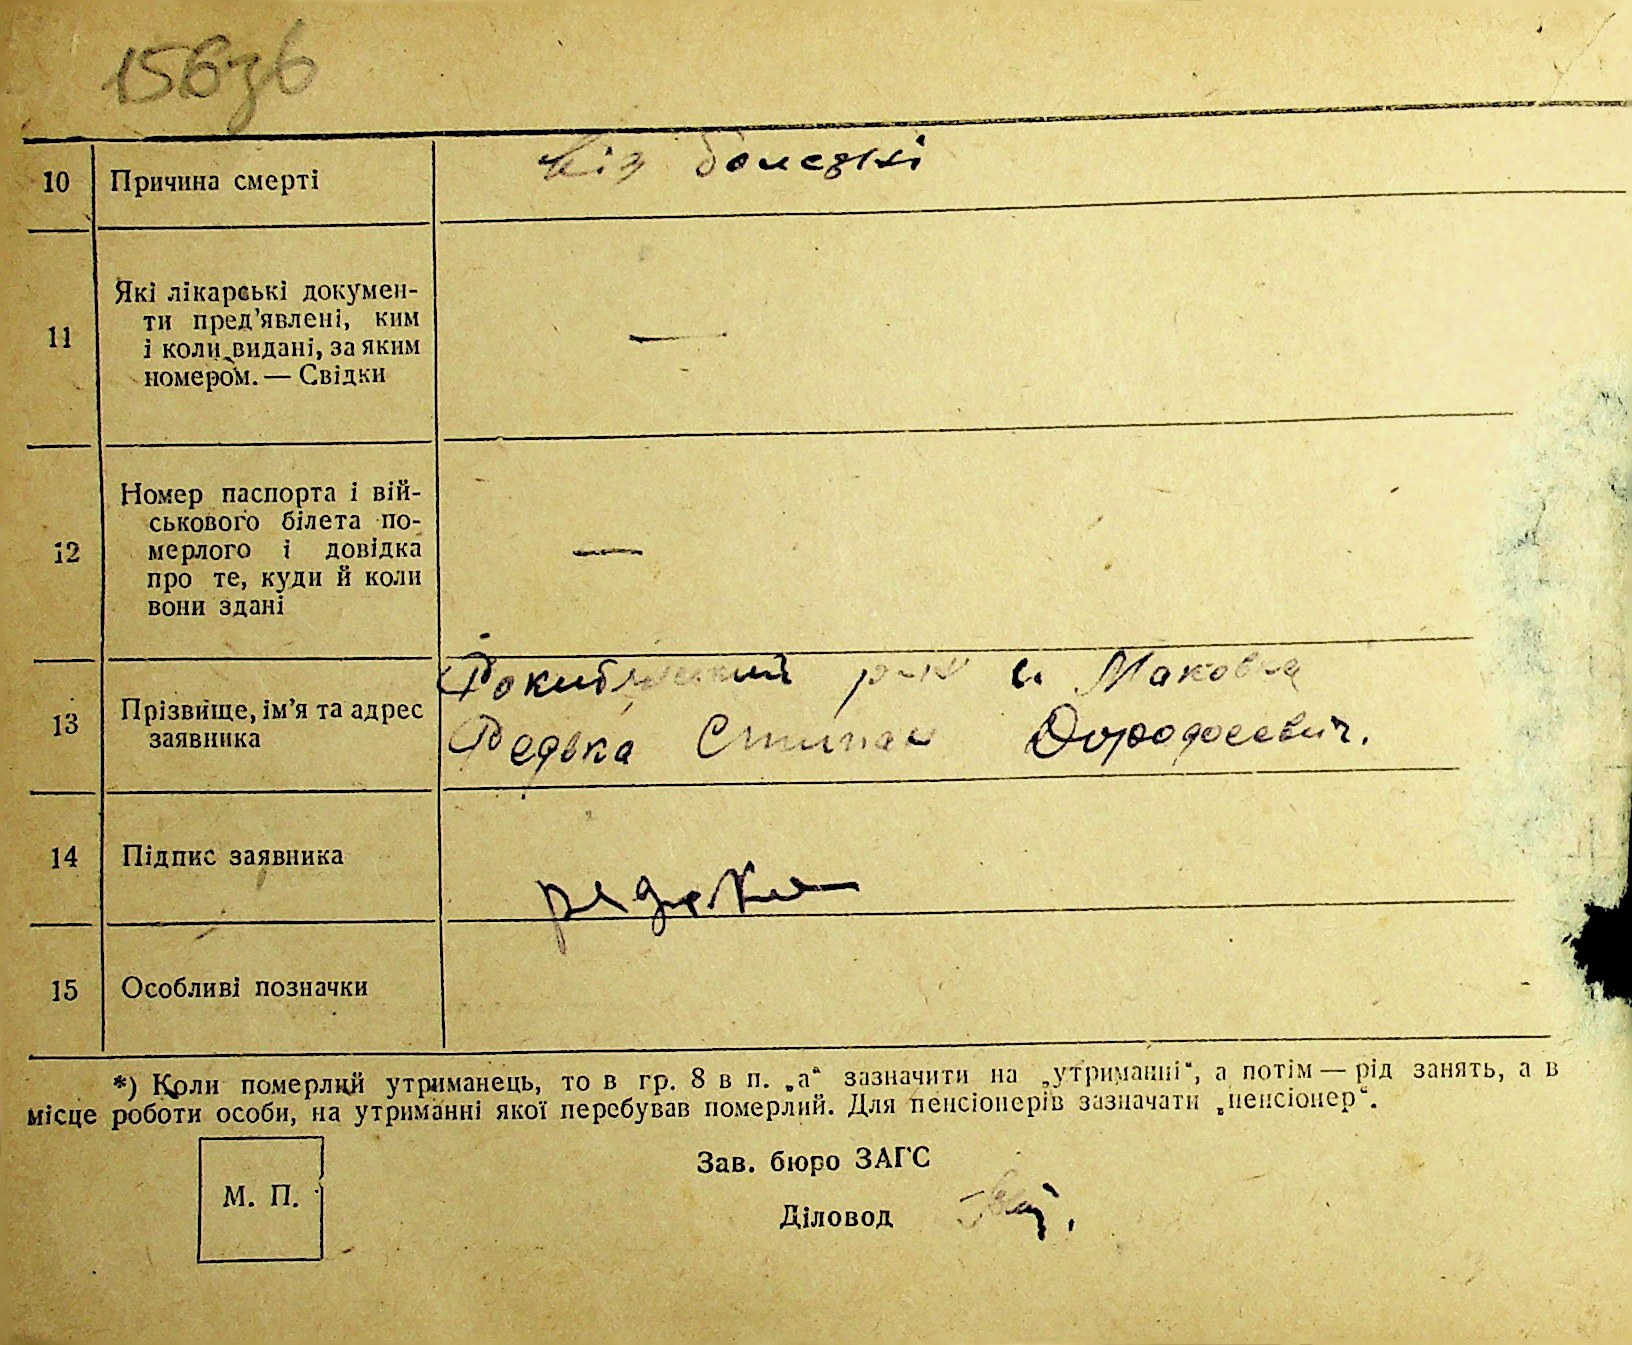 10 Причина смерті від болезні
11 Які лікарські докумен-
ти пред’явлені, ким
і коли видані, за яким
номером. — Свідки —
12 Номер паспорта і вій-
ськового білета по-
мерлого і довідка
про те, куди й коли
вони здані —
13 Прізвище, ім’я та адрес
заявника
с. Маковea
Редька Степан
14 Підпис заявника редька
15 Особливі позначки
*) Коли померлий утриманець, то в гр. 8 в п. „а“ зазначити на „утриманні“, а потім — рід занять, а в
місце роботи особи, на утриманні якої перебував померлий. Для пенсіонерів зазначати „пенсіонер“.
М. П.
Зав. бюро ЗАГС
Діловод